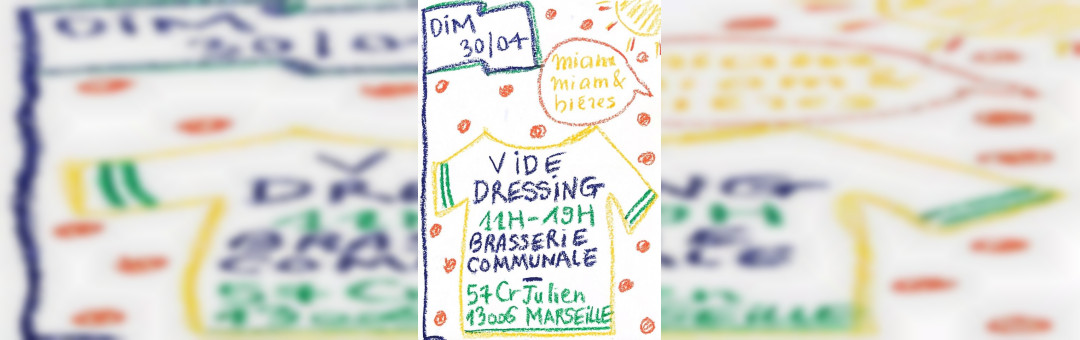 DiM
30/04
miam
miam &
bières
ViDE
DRESSiNG
11H-19H
BRASSERiE
COMMUNALE
57 Cr Julien
13006 MARSEiLLE